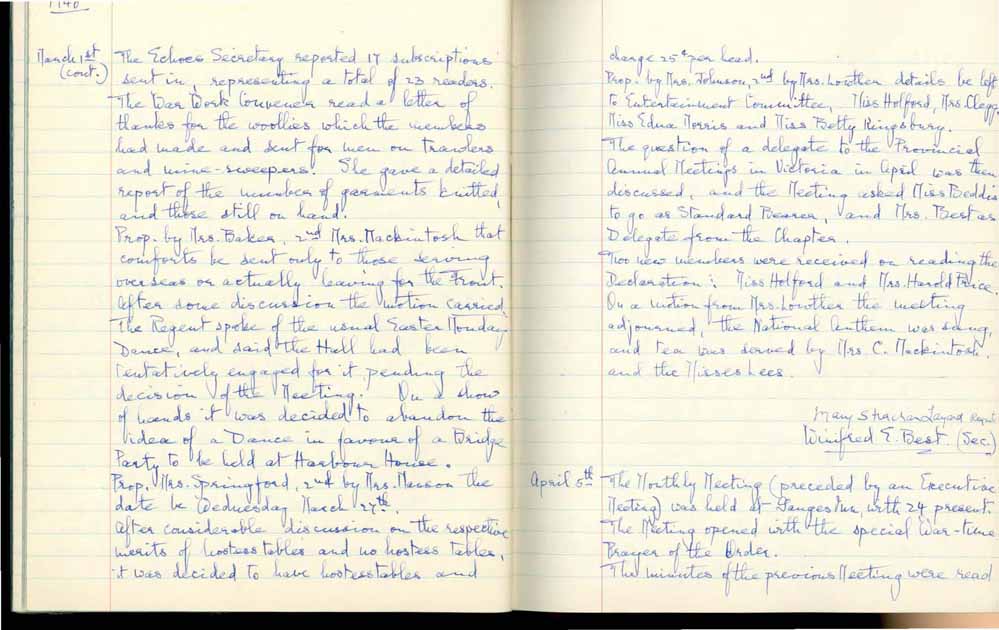 1940
March 1st
(cont.)
The Echoes Secretary reported 17 subscriptions
sent in, representing a total of 23 readers.
The War Work Convener read a letter of
thanks for the woollies which the members
had made and sent for men on trawlers
and mine-sweepers. She gave a detailed
report of the number of garments knitted,
and those still on hand.
Prop. by Mrs. Baker, 2nd Mrs. Mackintosh that
comforts be sent only to those serving
overseas or actually leaving for the Front.
After some discussion the motion carried.
The Regent spoke of the usual Easter Monday
Dance, and said the Hall had been
tentatively engaged for it, pending the
decision of the Meeting. On a show
of hands it was decided to abandon the
idea of a Dance in favour of a Bridge
Party to be held at Harbour House.
Prop. Mrs. Springford, 2nd by Mrs. Masson the
date be Wednesday March 27th.
After considerable discussion on the respective
merits of hostess tables and no hostess tables,
it was decided to have hostess tables and
charge 25¢ per head.
Prop. by Mrs. Johnson, 2nd by Mrs. Lowther details be left
to Entertainment Committee, Miss Holford, Mrs. Clegg,
Miss Edna Morris and Miss Betty Kingsbury.
The question of a delegate to the Provincial
Annual Meetings in Victoria in April was then
discussed, and the Meeting asked Miss Beddis
to go as Standard Bearer, and Mrs. Best as
Delegate from the Chapter.
Two new members were received on reading the
Declaration: Miss Holford and Mrs. Harold Price.
On a motion from Mrs. Lowther the meeting
adjourned, the National Anthem was sung,
and tea was served by Mrs. C. Mackintosh.
and the Misses Lees.
Mary Strachan Layard Regent
Winifred E. Best (Sec.)
April 5th
The Monthly Meeting (preceded by an Executive
Meeting) was held at Ganges Inn, with 24 present.
The Meeting opened with the special War-time
Prayer of the Order.
The minutes of the previous Meeting were read